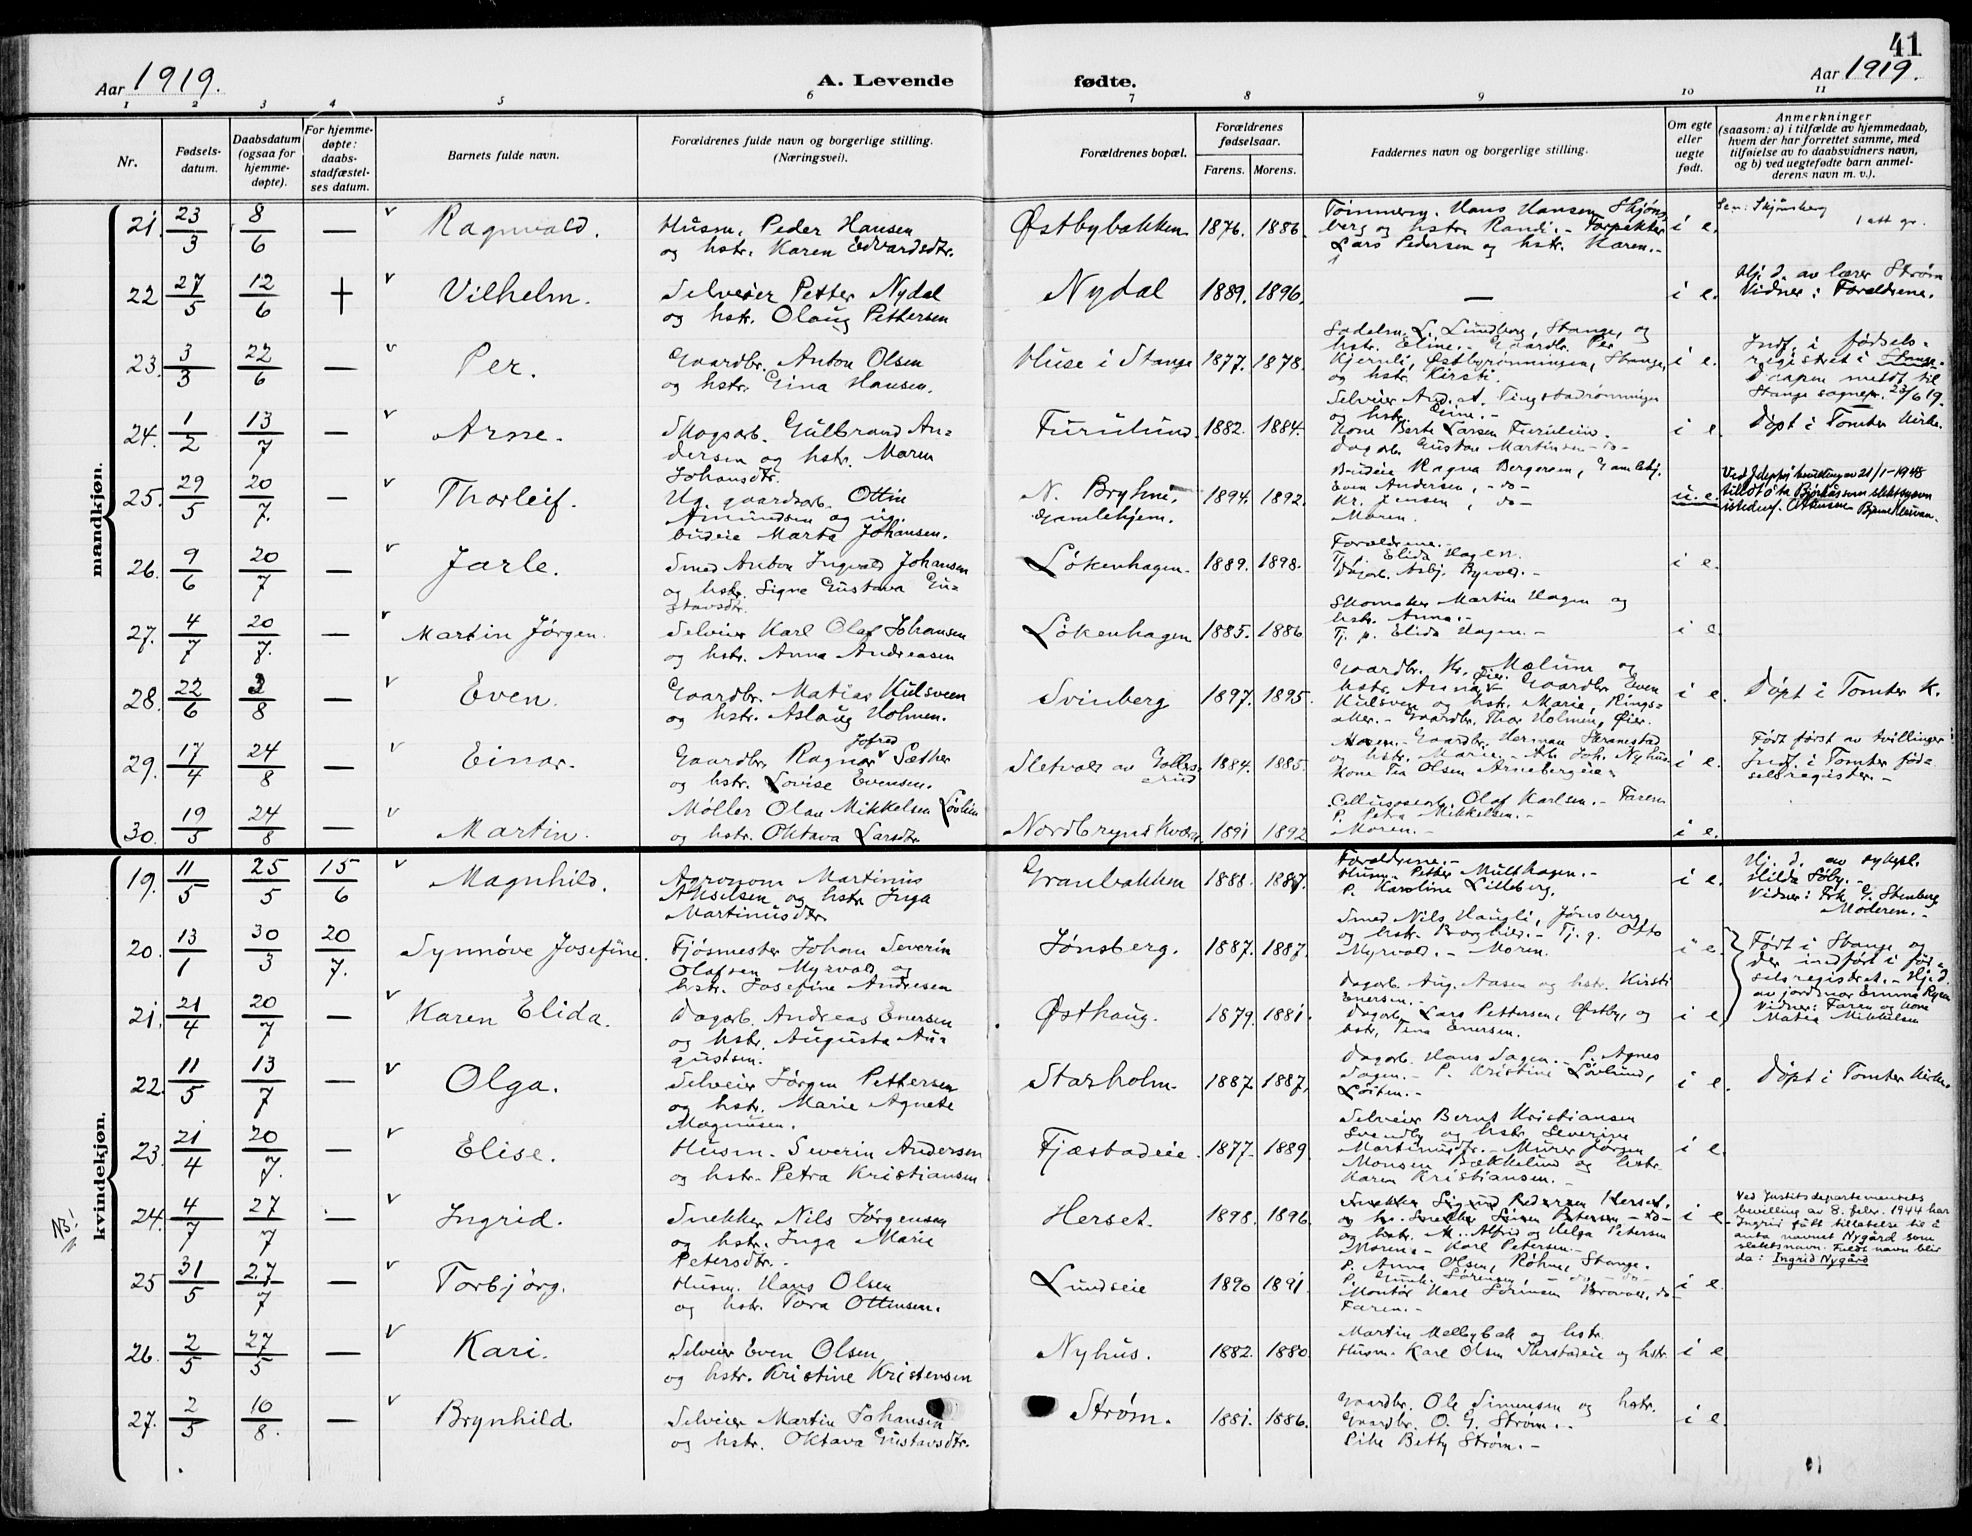 41
Aar 1919.
A. Levende fødte.
Aar 1919.
1 2 3 4 5 6 7 8 9 10 11
Nr.
Fødsels-
datum.
Daabsdatum
(ogsaa for
hjemme-
døpte).
For hjemme-
døpte:
daabs-
stadfæstel-
ses datum.
Barnets fulde navn.
Forældrenes fulde navn og borgerlige stilling.
(Næringsvei).
Forældrenes bopæl.
Forældrenes
fødselsaar.
Farens. Morens.
Faddernes navn og borgerlige stilling.
Om egte
eller
uegte
født.
Anmerkninger
(saasom: a) i tilfælde av hjemmedaab,
hvem der har forrettet samme, med
tilføielse av to daabsvidners navn,
og b) ved uegtefødte barn anmel-
derens navn m. v.).
mandkjøn.
21. 23/3 8/6 — v Ragnvald. Husm. Peder Hansen Østbybakken 1876. 1886. i e.
og hstr. Karen Edvardsdtr.
Tømmerm. Hans Hansen Skjøns
berg og hstr. Randi. -
Lars Pedersen og hstr. Karen. -
1 att gr.
22 27/5 12/6 + v Vilhelm. Selveier Petter Nydal Nydal 1889. 1896. — i e.
og hstr. Olaug Pettersen
Hj. d. av lærer Strøm
Vidner: Forældrene.
23. 3/3 22/6 — v Per. Gaardbr. Anton Olsen Huse i Stange 1877. 1878. i e.
og hstr. Gina Hansen.
Sadelm. L. Lundberg, Stange, og
hstr. Eline. - Gaardbr. Per
Kjernli, Østbyrønningen, Stange,
og hstr. Kirsti.
Indf. i fødsels-
registret i Stange.
Daapen meldt til
Stange sognepr. 23/6 19.
24. 1/2 13/7 — v Arne. Skogsarb. Gulbrand An- Furulund 1882. 1884. i e.
dersen og hstr. Maren
Johansdtr.
og hstr. Eine. -
Kone Berte Larsen Furulund.
Dagarb. Gustav Martinsen - do -
Døpt i Tomter kirke.
25. 29/5 20/7. — v Thorleif. Ug. gaardsarb. Ottin N. Bryhni, 1894. 1892. u. e.
Amundsen og ug. Gamlehjem.
budeie Marta Johansen.
Budeie Ragna Bergersen, Gamlehj.
Even Andersen, - do -
Kr. Jensen, do -
Moren.
26. 9/6 20/7 — v Jarle. Smed Anton Ingvald Johansen Løkenhagen. 1889. 1898. i e.
og hstr. Signe Gustava Gu-
stavsdtr.
Forældrene. -
Tj. Elida Hagen.
27. 4/7 20/7. — v Martin Jørgen. Selveier Karl Olaf Johansen Løkenhagen 1885. 1886 i e.
og hstr. Anna Andreasen
Skomaker Martin Hagen og
hstr. Anna. -
Tj. p. Elida Hagen. -
28. 22/6 3/8 — v Even. Gaardbr. Matias Kulsveen Svinberg 1897. 1895. i e.
og hstr. Aslaug Holmen.
Gaardbr. Kr. Mælum og
hstr. Anna, Øier. Gaardbr. Even
Kulsveen og hstr. Marie, Rings-
aker. - Gaardbr. Thor Holmen, Øier.
Døpt i Tomter K.
29. 17/4 24/8 — v Einar. Gaardbr. Ragnar Jofred Sæther 1884. 1885. i e.
og hstr. Lovise Evensen.
og hstr. Marie. - Joh. Nyhus
Kone Tea Olsen Arnebergeie -
Født først av tvillinger
Indf. i Tomter fød-
selsregister. -
30. 19/5 24/8 — v Martin. Møller Olav Mikkelsen Løvlien 1891 1892 i e.
og hstr. Oktava Larsdtr.
Cellulosearb. Olaf Karlsen. - Faren
P. Petra Mikkelsen. -
Moren. -
kvindekjøn.
19. 11/5 25/5 15/6 v Magnhild. Agronom Martinus Granbakken 1888. 1887. i e.
Akselsen og hstr. Inga
Martinusdtr.
Forældrene. -
Husm. Petter Multhagen. -
P. Karoline Lilleberg.
Hj. d. av sykepl.
Hilda Søby. -
Vidner: Frk G. Stenberg
Moderen. -
20. 13/1 30/3 20/7. Synnøve Josefine. Fjøsmester Johan Severin Jønsberg. 1887. 1887. i e.
Olafsen Myrvold og
hstr. Josefine Andresen
Smed Nils Haugli, Jønsberg,
og hstr. Borghild. - Tj. g. Otto
Myrvold. - Moren.
Født i Stange og
der indført i fød-
selsregistret. - Hj. d.
av jordmor Emma Ryen
Vidner: Faren og kone
Matea Mikkelsen
21. 21/4 20/7 — v Karen Elida. Dagarb. Andreas Enersen Østhaug. 1879. 1881. i e.
og hstr. Augusta Au-
gustsen.
Dagarb. Aug. Aasen og hstr. Kirsti
Enersen. -
Dagarb. Lars Pettersen, Østby, og
hstr. Tina Enersen.
22. 11/5 13/7 — v Olga. Selveier Jørgen Pettersen Starholm. 1887. 1887. i e.
og hstr. Marie Agnete
Magnusen.
Dagarb. Hans Sagen. - P. Agnes
Sagen. - P. Kristine Løvlund,
Løiten. -
Døpt i Tomter kirke
23. 21/4 20/7. — v Elise. Husm. Severin Andersen Fjæstadeie. 1877. 1889. i e.
og hstr. Petra Kristiansen
Selveier Bernt Kristiansen
Svendby og hstr. Severine
Martinusdtr. - Murer Jørgen
Monsen Bækkelund og hstr.
Karen Kristiansen. -
NB!
24. 4/7 27/7 — v Ingrid. Snekker Nils Jørgensen Herset. 1898. 1896. i e.
og hstr. Inga Marie
Petersdtr.
Snekker Sigurd Pedersen Herset,
og hstr. M.. Alfrid og Helga Petersen
Moren. - Karl Petersen. -
Ved Justitsdepartementets
bevilling av 8. febr. 1944 har
Ingrid fått tillatelse til å
anta navnet Nygård som
slektsnavn. Fulde navn blir
da: Ingrid Nygård
25 31/5 27/7 — v Torbjørg. Husm. Hans Olsen Lundseie 1890 1891. i e.
og hstr. Tora Ottinsen.
P. Anna Olsen, Røhne, Stange.
Montør Karl Sørensen
Faren. -
26. 2/5 27/5 — v Kari. Selveier Even Olsen Nyhus. 1882. 1880. i e.
og hstr. Kristine Kristensen
Martin Mellbybak og hstr.
Husm. Karl Olsen og hstr.
27. 2/5 10/8. — v Brynhild. Selveier Martin Johansen Strøm. 1881. 1886. i e.
og hstr. Oktava Gustavsdtr.
Gaardbr. Ole Simensen og hstr.
Gaardbr. O. G. Strøm. -
Pike Betty Strøm. -